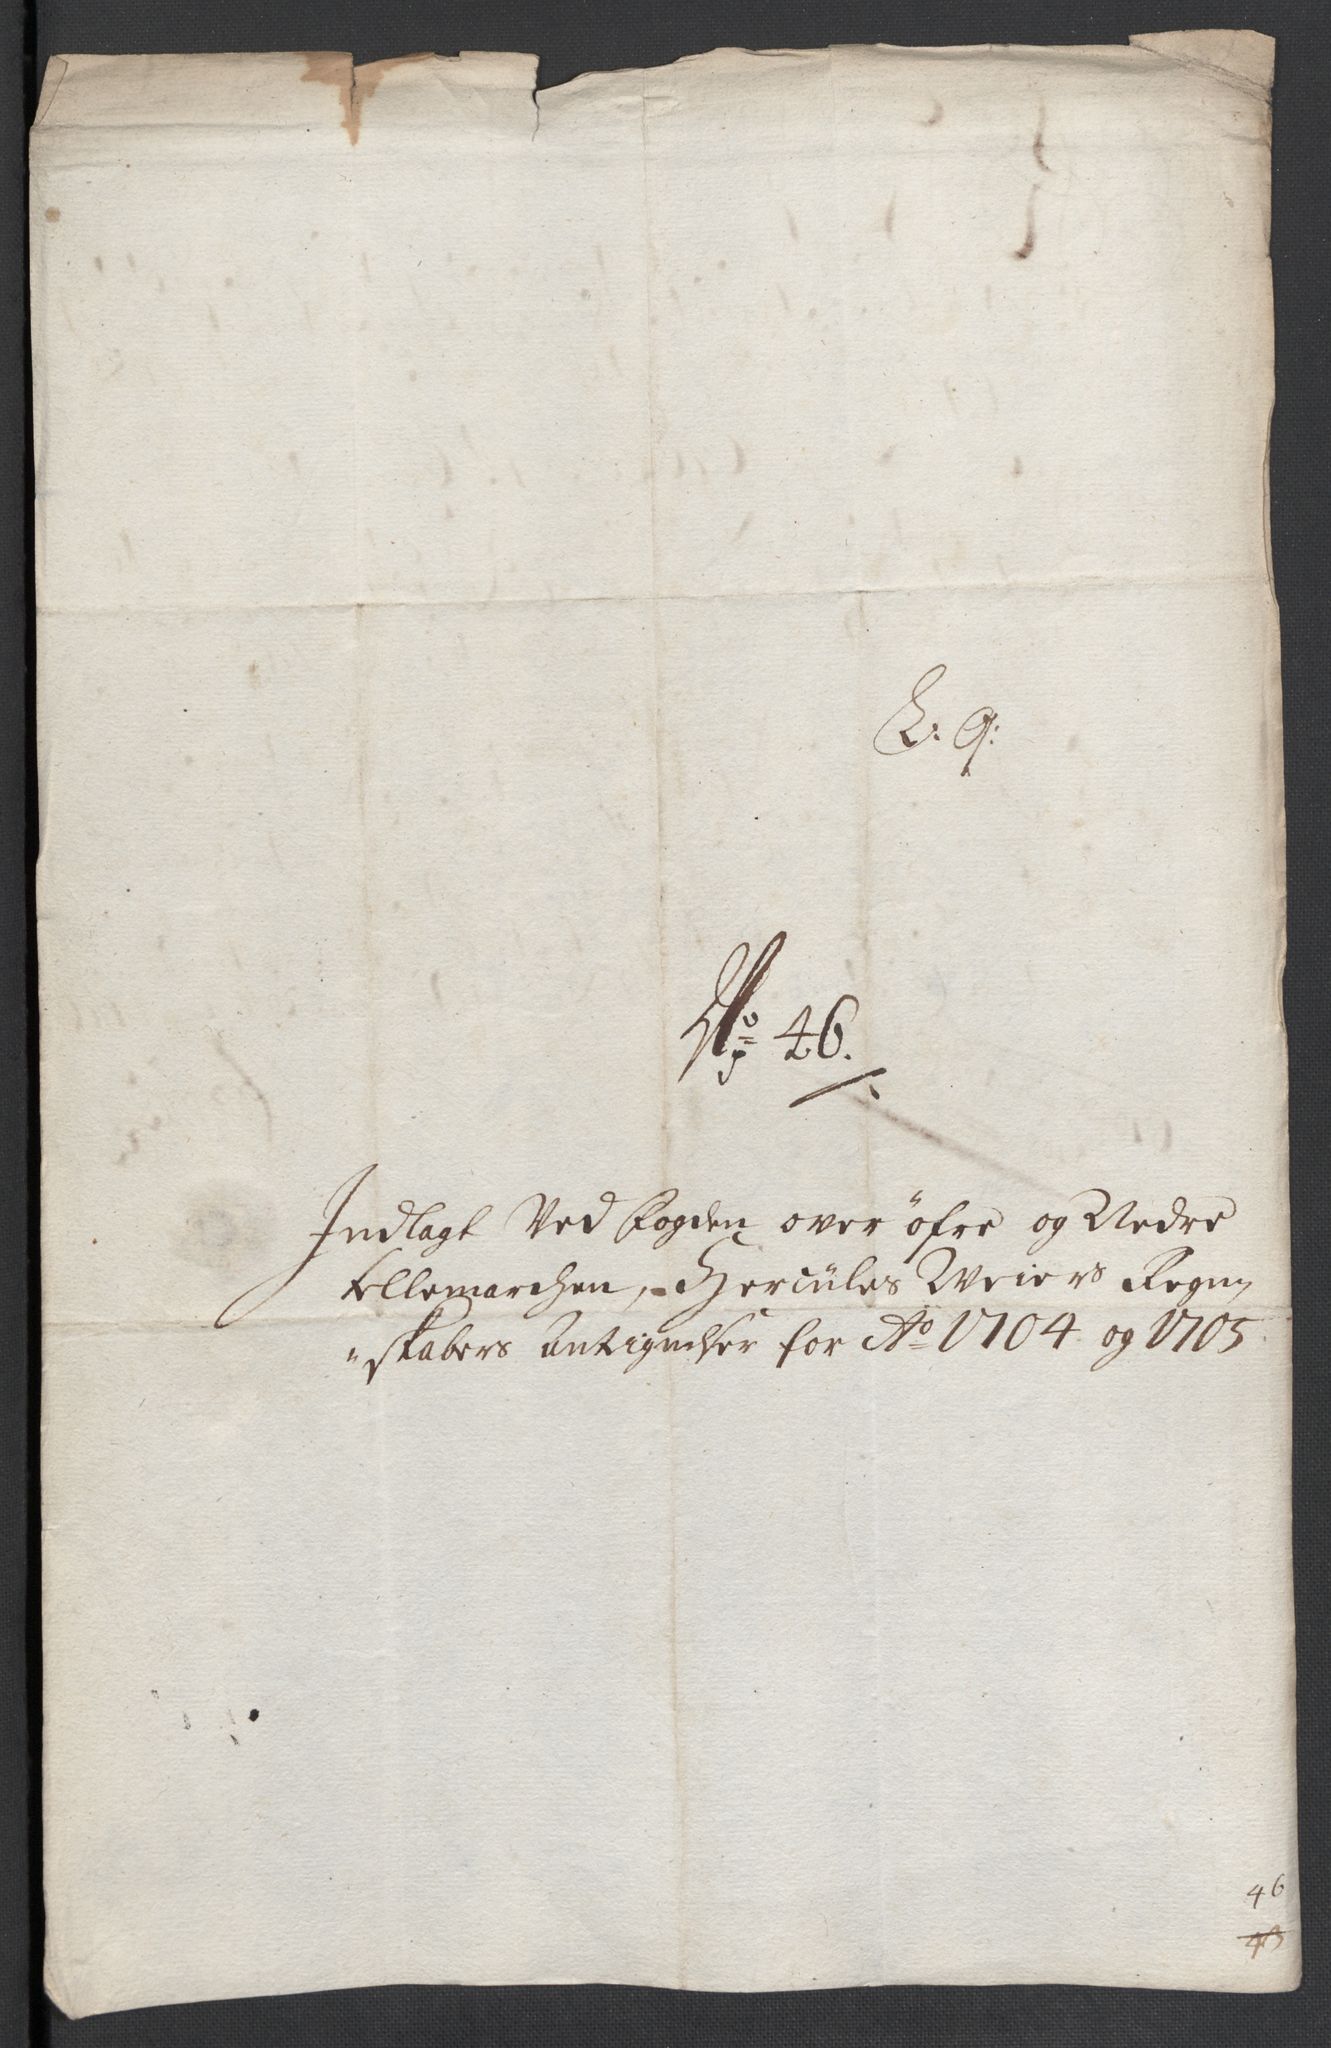 L: G:
No 46.
Indlagt Ved fogden over öfre og Nedre
tellemarchen, Hercüles Weiers Regn
skabers Antignelser for Ao 1704 og 1705
46
43